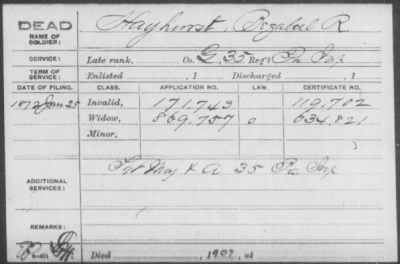 DEAD
NAME OF
SOLDIER:
Hayhurst, Bezaleel R
SERVICE:
Late rank, Co. G. 35 Reg't Pa Inf
TERM OF
SERVICE:
Enlisted , 1 Discharged , 1
DATE OF FILING. CLASS. APPLICATION NO. LAW. CERTIFICATE NO.
1872 Jan 25 Invalid, 171.743 119.702
Widow, 869.757 0 634.821
Minor,
ADDITIONAL
SERVICES:
& A 35 Pa Inf
REMARKS:
Died , 1902, at